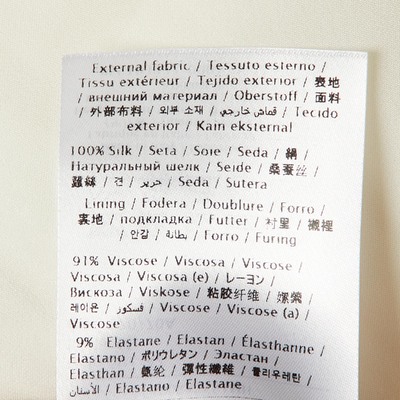 External fabric / Tessuto esterno /
Tissu extérieur / Tejido exterior / 表地
/ внешний материал / Oberstoff / 面料
/ 外部布料 / 외부 소재 / قماش خارجي / Tecido
exterior / Kain eksternal
100% Silk / Seta / Soie / Seda / 絹 /
Натуральный шелк / Seide / 桑蚕丝 /
蠶絲 / 견 / حرير / Seda / Sutera
Lining / Fodera / Doublure / Forro /
裏地 / подкладка / Futter / 衬里 / 襯裡
/ 안감 / بطانة / Forro / Furing
91% Viscose / Viscosa / Viscose /
Viscosa / Viscosa (e) / レーヨン /
Вискоза / Viskose / 粘胶纤维 / 嫘縈 /
레이온 / فسكوز / Viscose / Viscose (a) /
Viscose
9% Elastane / Elastan / Élasthanne /
Elastano / ポリウレタン / Эластан /
Elasthan / 氨纶 / 彈性纖維 / 폴리우레탄 /
الأستان / Elastano / Elastane